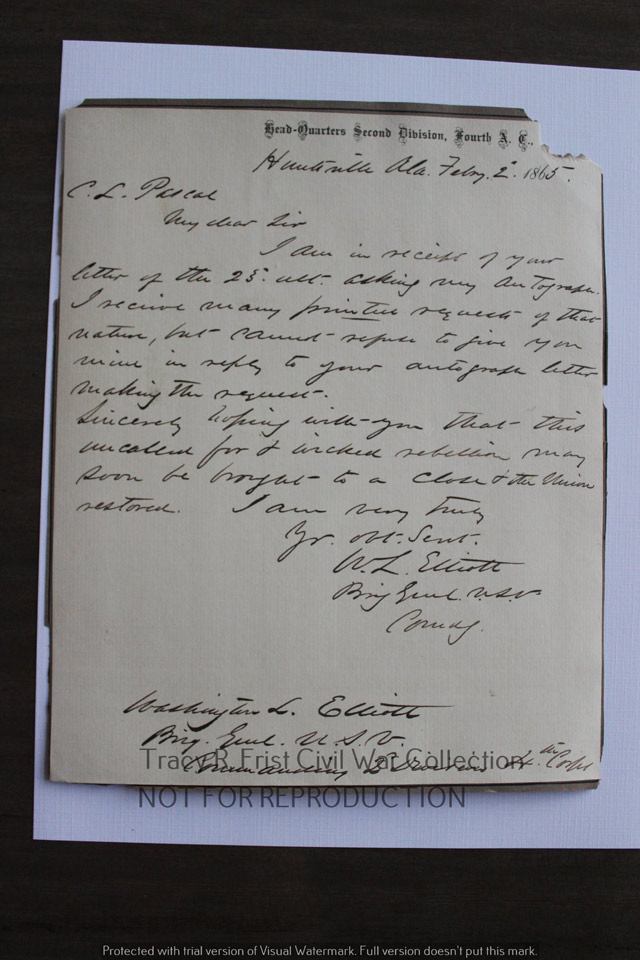 Head-Quarters Second Division, Fourth A. C.,
Huntsville Ala. Feby. 2d. 1865.
C. L. Pascal
My dear Sir
I am in receipt of your
letter of the 25th ult. asking my autograph.
I receive many printed requests of that
nature, but cannot refuse to give you
mine in reply to your autograph letter
making the request.
Sincerely hoping with you that this
uncalled for & wicked rebellion may
soon be brought to a close & the Union
restored. I am very truly
Yr. obt. Servt.
W. L. Elliott
Brig Genl. U.S.V.
Comdg.
Washington L. Elliott
Brig. Genl. U. S. V.
Commanding 2 Division 4th Corps
Tracy R. Frist Civil War Collection
NOT FOR REPRODUCTION
Protected with trial version of Visual Watermark. Full version doesn't put this mark.